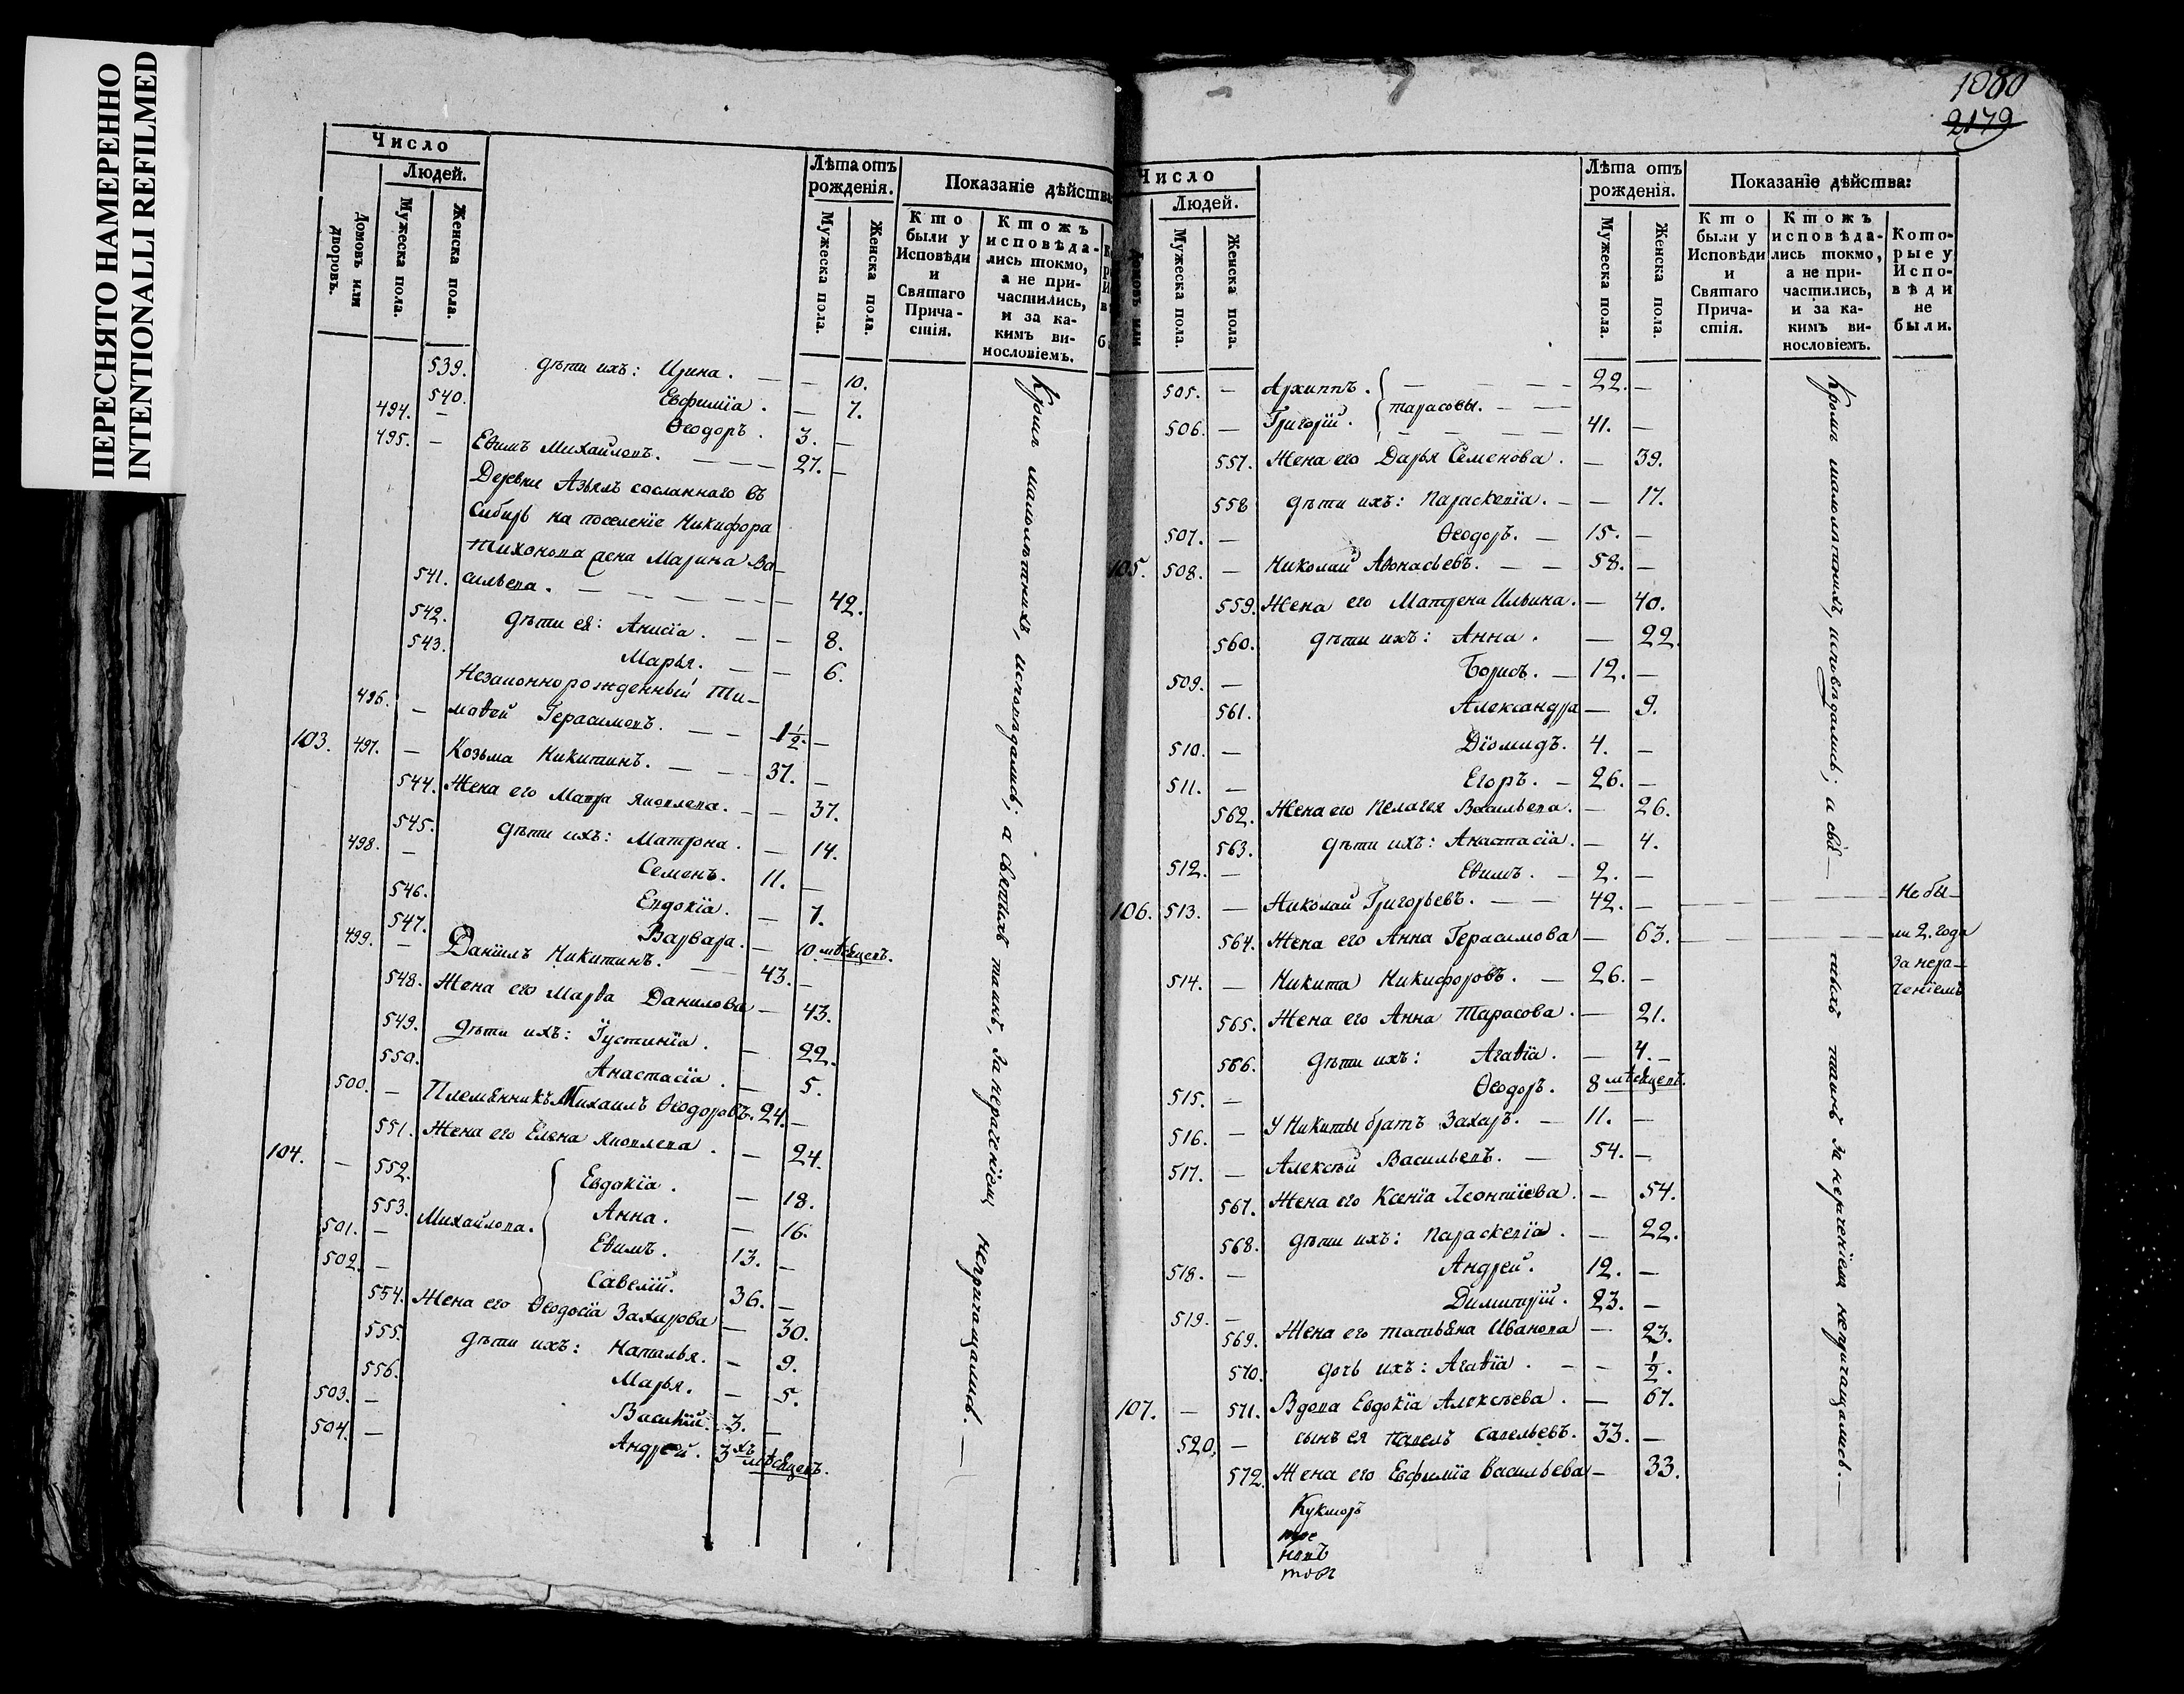 ПЕРЕСНЯТО НАМЕРЕННО
INTENTIONALLI REFILMED
Число
Людей.
Домовъ или дворовъ.
Мужеска пола.
Женска пола.
Лѣта отъ рожденія.
Мужеска пола.
Женска пола.
Показаніе дѣйства
Кто были у Исповѣди и Святаго Прича-стія.
Ктожъ исповѣда-лись токмо, а не при-частились, и за ка-кимъ ви-нословіемъ.
539. дѣти ихъ: Ирина. — — 10.
540. Евфимїа. — 7.
494. — Ѳеодоръ. 3. —
495. — Еѳимъ Михайловъ. — — — 27. —
Деревни Азьялъ сосланнаго въ
Сибирь на поселеніе Никифора
Тихонова жена Марина Ва-
541. сильева. — — — — — 42.
542. дѣти ея: Анисїа. — — 8.
543. Марья. — — 6.
Незаконнорожденный Ти-
496. — моѳей Герасимовъ. — — 1½. —
103. 497. — Козьма Никитинъ. — — 37. —
544. Жена его Мавра Яковлева. — — 37.
545. дѣти ихъ: Матрона. — 14.
498. — Семенъ. 11. —
546. Евдокїа. — 7.
547. Варвара. — 10. мѣсяцевъ.
499. — Данїилъ Никитинъ. — 43. —
548. Жена его Марѳа Данилова — 43.
549. дѣти ихъ: Їустинїа. — 22.
550. Анастасїа. — 5.
500. — Племянникъ Михаилъ Ѳеодоровъ. 24. —
551. Жена его Елена Яковлева. — 24.
104. — 552. Евдокїа. — 18.
553. Михайлова. Анна. — 16.
501. — Еѳимъ. 13. —
502. — Савелїй. 36. —
554. Жена его Ѳеодосїа Захарова — 30.
555. дѣти ихъ: Наталья. — 9.
556. Марья. — 5.
503. — Василїй. 3. —
504. — Андрей. 3хъ мѣсяцевъ.
Кромѣ малолѣтнихъ, исповѣдались; а святыхъ таинъ, за нераченїемъ непричащались. —
1080
2179
Число
Людей.
Домовъ или
Мужеска пола.
Женска пола.
Лѣта отъ рожденія.
Мужеска пола.
Женска пола.
Показаніе дѣйства:
Кто были у Исповѣди и Святаго Прича-стія.
Ктожъ исповѣда-лись токмо, а не при-частились, и за ка-кимъ ви-нословіемъ.
Кото-рые у Испо-вѣди не были.
505. — Архиппъ. — — — — 22. —
Тарасовы. — —
506. — Григорїй. — — — — 41. —
557. Жена его Дарья Семенова. — 39.
558 дѣти ихъ: Параскевїа. — — 17.
507. — Ѳеодоръ. — 15. —
105. 508. — Николай Аѳонасьевъ. — — 58. —
559. Жена его Матрена Ильина. — 40.
560. дѣти ихъ: Анна. — 22.
509. — Борисъ. — 12. —
561. Александра — 9.
510. — Дїомидъ. 4. —
511. — Егоръ. — 26. —
562. Жена его Пелагея Васильева. — 26.
563. дѣти ихъ: Анастасїа. — 4.
512. — Еѳимъ. — 2. —
106. 513. — Николай Григорьевъ. — — 42. — Не бы-
564. Жена его Анна Герасимова — 63. ли 2. года
За нера-
514. — Никита Никифоровъ. — 26. — ченїемъ
565. Жена его Анна Тарасова. — 21.
566. дѣти ихъ: Агаѳїа. — 4. —
515. — Ѳеодоръ. 8 мѣсяцевъ.
516. — У Никиты братъ Захаръ. — 11. —
517. — Алексѣй Васильевъ. — 54. —
567. Жена его Ксенїа Леонтїева. — 54.
568. дѣти ихъ: Параскевїа. — 22.
518. — Андрей. 12. —
519. — Димитрїй. 23. —
569. Жена его Татьяна Иванова — 23.
570. дочь ихъ: Агаѳїа. — — ½.
107. — 571. Вдова Евдокїа Алексѣева. — 67.
520. — сынъ ея Павелъ Савельевъ. 33. —
572. Жена его Евфимїа Васильева — 33.
Кукморъ
Кромѣ малолѣтнихъ, исповѣдались; а свя-тыхъ таинъ за нераченїемъ непричащались. —